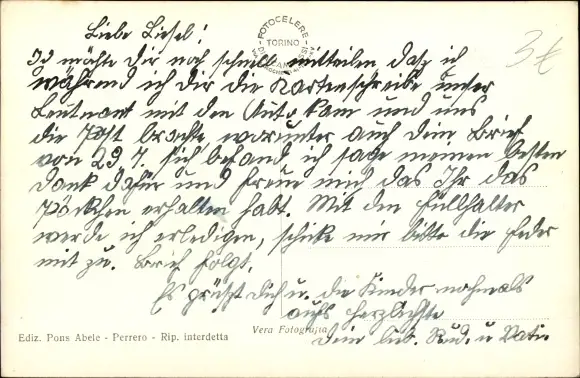 Liebe Liesel!
FOTOCELERE
TORINO
Ich möchte Dir noch schnell mitteilen dasz ich
während ich dir die Karte schreibe unser
Leutnant mit den Auto kam und uns
die Post brachte worunter auch dein Brief
von 29.7. sich befand ich sage meinen besten
Dank dafür und freue mich das Ihr das
Päckchen erhalten habt. Mit den Füllhalter
werde ich erledigen, schicke mir bitte die Feder
mit zu. Brief folgt.
Es grüszt Dich u. die Kinder nochmals
aufs herzlichste
Dein lieb. Rud. u Vati.
Ediz. Pons Abele - Perrero - Rip. interdetta
Vera Fotografia